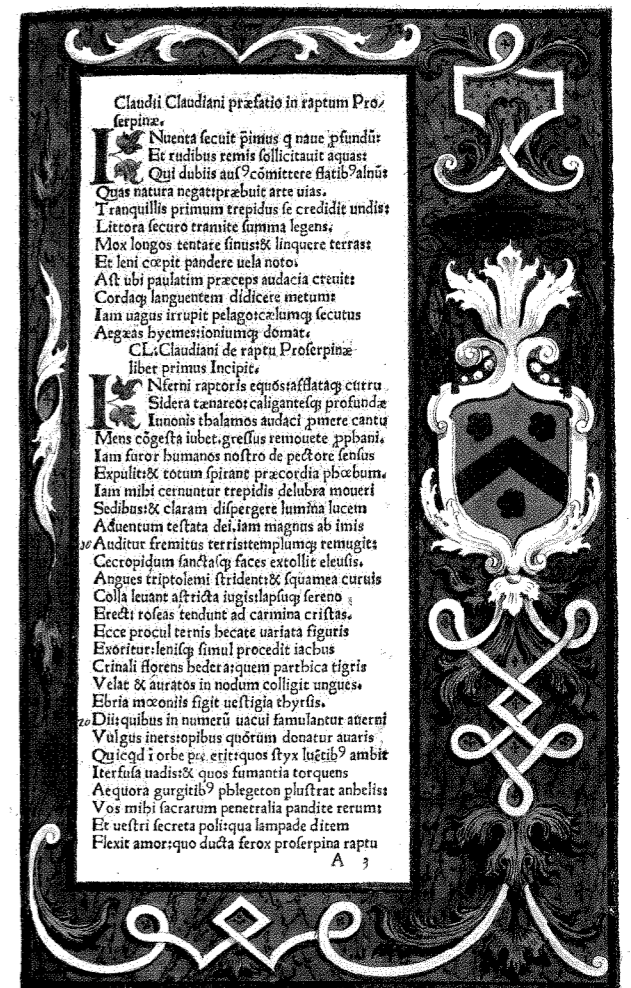 Claudii Claudiani præfatio in raptum Pro/
serpinæ.
INuenta secuit p̄imus q naue ꝓfundū:
Et rudibus remis sollicitauit aquas:
Qui dubiis ausꝰ cōmittere flatibꝰ alnū:
Quas natura negat: præbuit arte uias.
Tranquillis primum trepidus se credidit undis:
Littora securo tramite summa legens.
Mox longos tentare sinus: & linquere terras:
Et leni cœpit pandere uela noto.
Ast ubi paulatim præceps audacia creuit:
Cordaqꝫ languentem didicere metum:
Iam uagus irrupit pelago: cælumqꝫ secutus
Aegæas hyemes: ioniumqꝫ domat.
CL. Claudiani de raptu Proserpinæ
liber primus Incipit.
INferni raptoris equos: afflataqꝫ curru
Sidera tænareo: caligantesqꝫ profundæ
Iunonis thalamos audaci ꝓmere cantu
Mens cōgesta iubet. gressus remouete ꝓphani.
Iam furor humanos nostro de pectore sensus
Expulit: & totum spirant præcordia phœbum.
Iam mihi cernuntur trepidis delubra moueri
Sedibus: & claram dispergere lumina lucem
Aduentum testata dei. iam magnus ab imis
Auditur fremitus terris: templumqꝫ remugit:
Cecropidum sanctasqꝫ faces extollit eleusis.
Angues triptolemi strident: & squamea curuis
Colla leuant astricta iugis: lapsuqꝫ sereno
Erecti roseas tendunt ad carmina cristas.
Ecce procul ternis hecate uariata figuris
Exoritur: lenisqꝫ simul procedit iachus
Crinali florens hedera: quem parthica tigris
Velat & auratos in nodum colligit ungues.
Ebria mœoniis figit uestigia thyrsis.
20 Dii: quibus in numerū uacui famulantur auerni
Vulgus iners: opibus quorum donatur auaris
Quicqd ī orbe erit: quos styx luētibꝰ ambit
Iterfusa uadis: & quos fumantia torquens
Aequora gurgitibꝰ phlegeton plustrat anhelis:
Vos mihi sacrarum penetralia pandite rerum:
Et uestri secreta poli: qua lampade ditem
Flexit amor: quo ducta ferox proserpina raptu
A 3